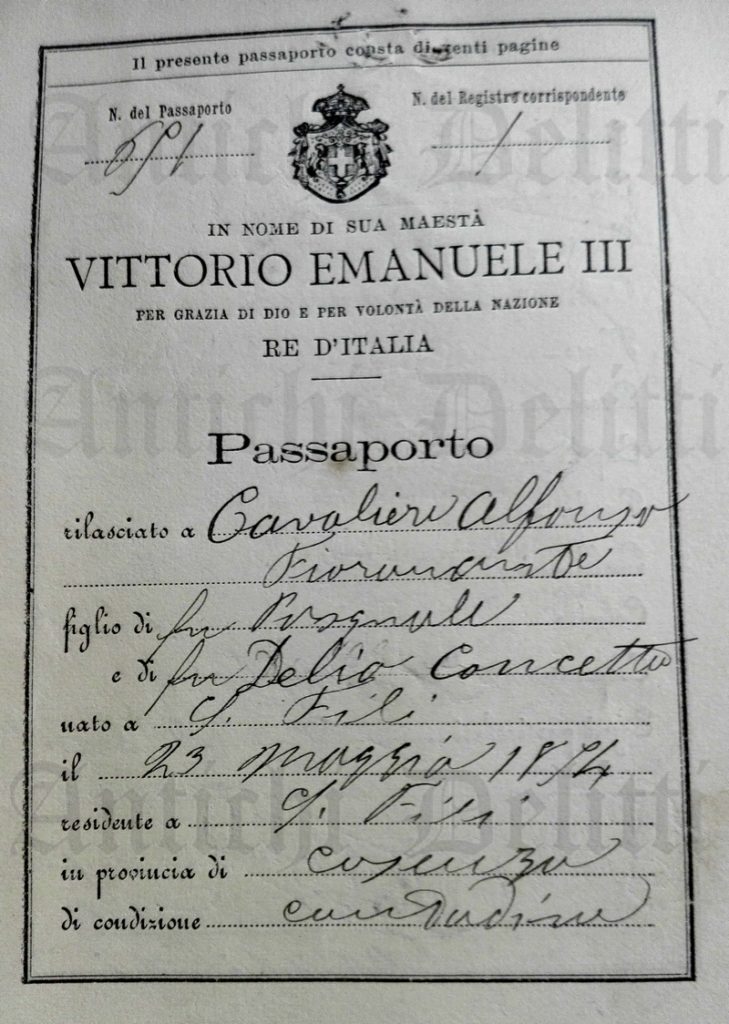 Il presente passaporto consta di venti pagine
N. del Passaporto
N. del Registro corrispondente
IN NOME DI SUA MAESTÀ
VITTORIO EMANUELE III
PER GRAZIA DI DIO E PER VOLONTÀ DELLA NAZIONE
RE D'ITALIA
Passaporto
rilasciato a Cavaliere Alfonso
Fioramante
figlio di fu Pasquale
e di fu Delio Concetta
nato a S. Fili
il 23 Maggio 1874
residente a S. Fili
in provincia di Cosenza
di condizione contadino
Antichi Delitti
Antichi Delitti
Antichi Delitti